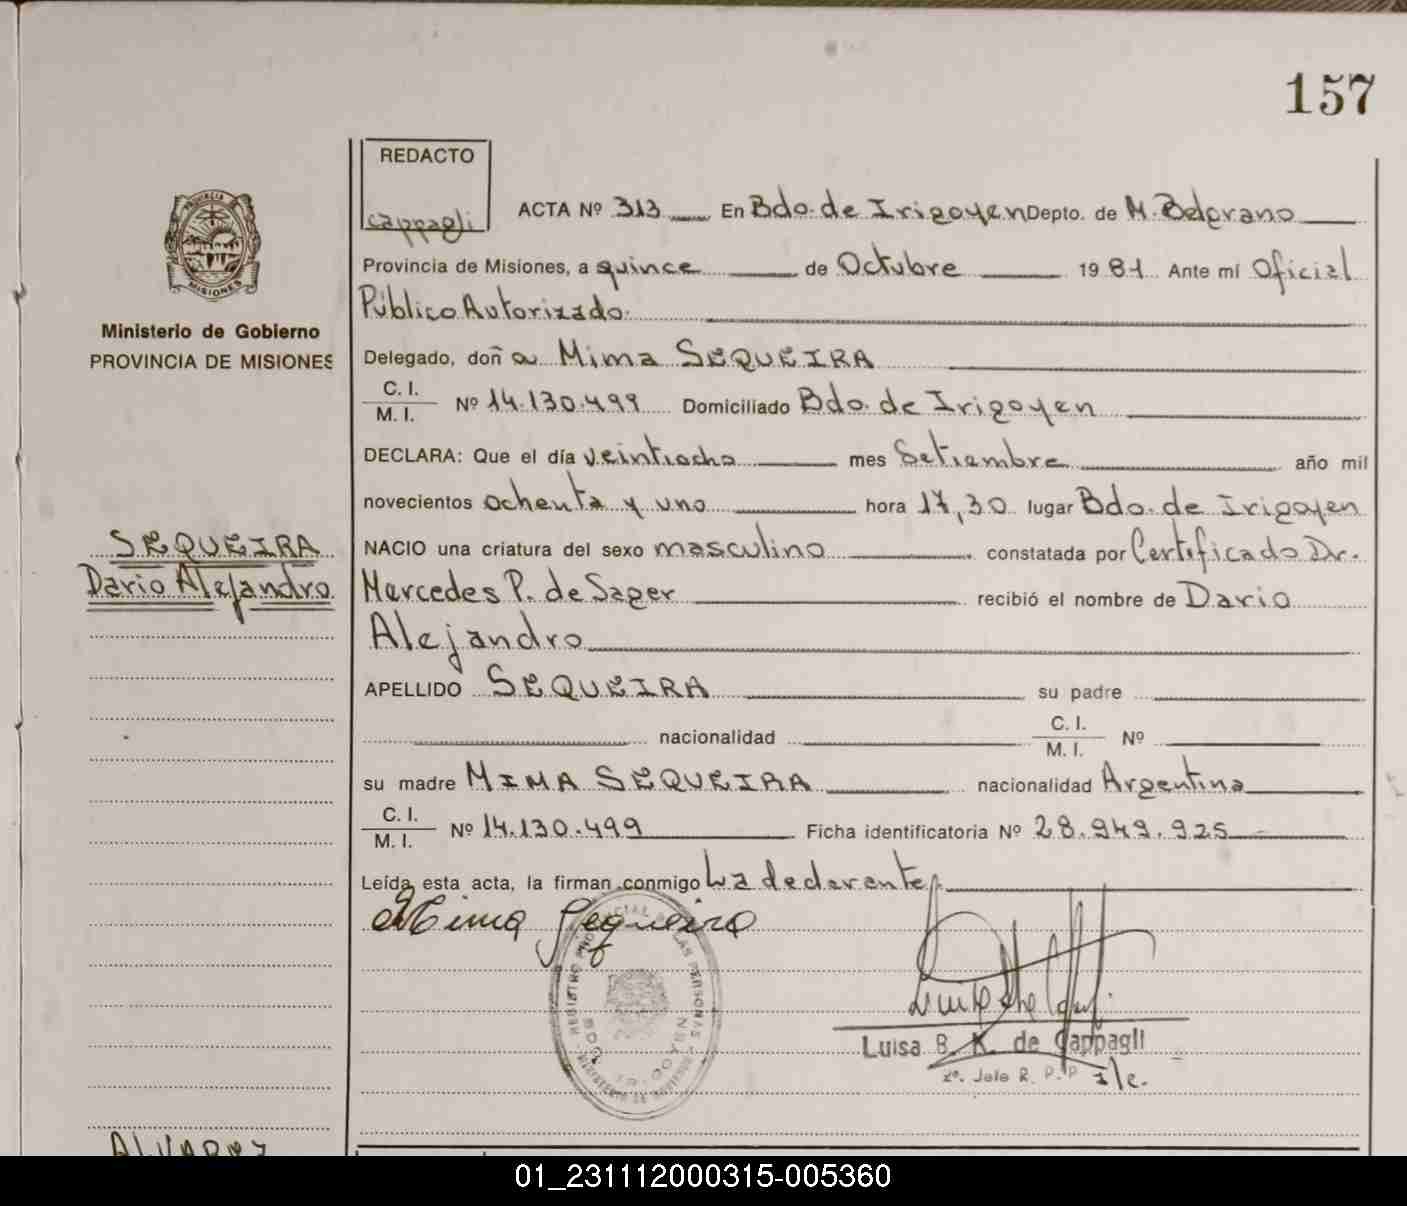 157
REDACTO
cappagli
ACTA Nº 313 En Bdo. de Irigoyen Depto. de M. Belgrano
Provincia de Misiones, a quince de Octubre 1981 Ante mí Oficial
Público Autorizado
Delegado, doña Mima SEQUEIRA
C. I.
M. I. Nº 14.130.499 Domiciliado Bdo. de Irigoyen
DECLARA: Que el día veintiocho mes Setiembre año mil
novecientos ochenta y uno hora 17,30 lugar Bdo. de Irigoyen
NACIO una criatura del sexo masculino constatada por Certificado Dr.
Mercedes P. de Sager recibió el nombre de Dario
Alejandro
APELLIDO SEQUEIRA su padre
nacionalidad C. I.
M. I. Nº
su madre MIMA SEQUEIRA nacionalidad Argentina
C. I.
M. I. Nº 14.130.499 Ficha identificatoria Nº 28.949.925
Leída esta acta, la firman conmigo La declarante
Mima Sequeira
Luisa B. K. de Cappagli
Jefe R. P. P.
PROVINCIA DE
MISIONES
Ministerio de Gobierno
PROVINCIA DE MISIONES
SEQUEIRA
Dario Alejandro
ALVAREZ
01_231112000315-005360